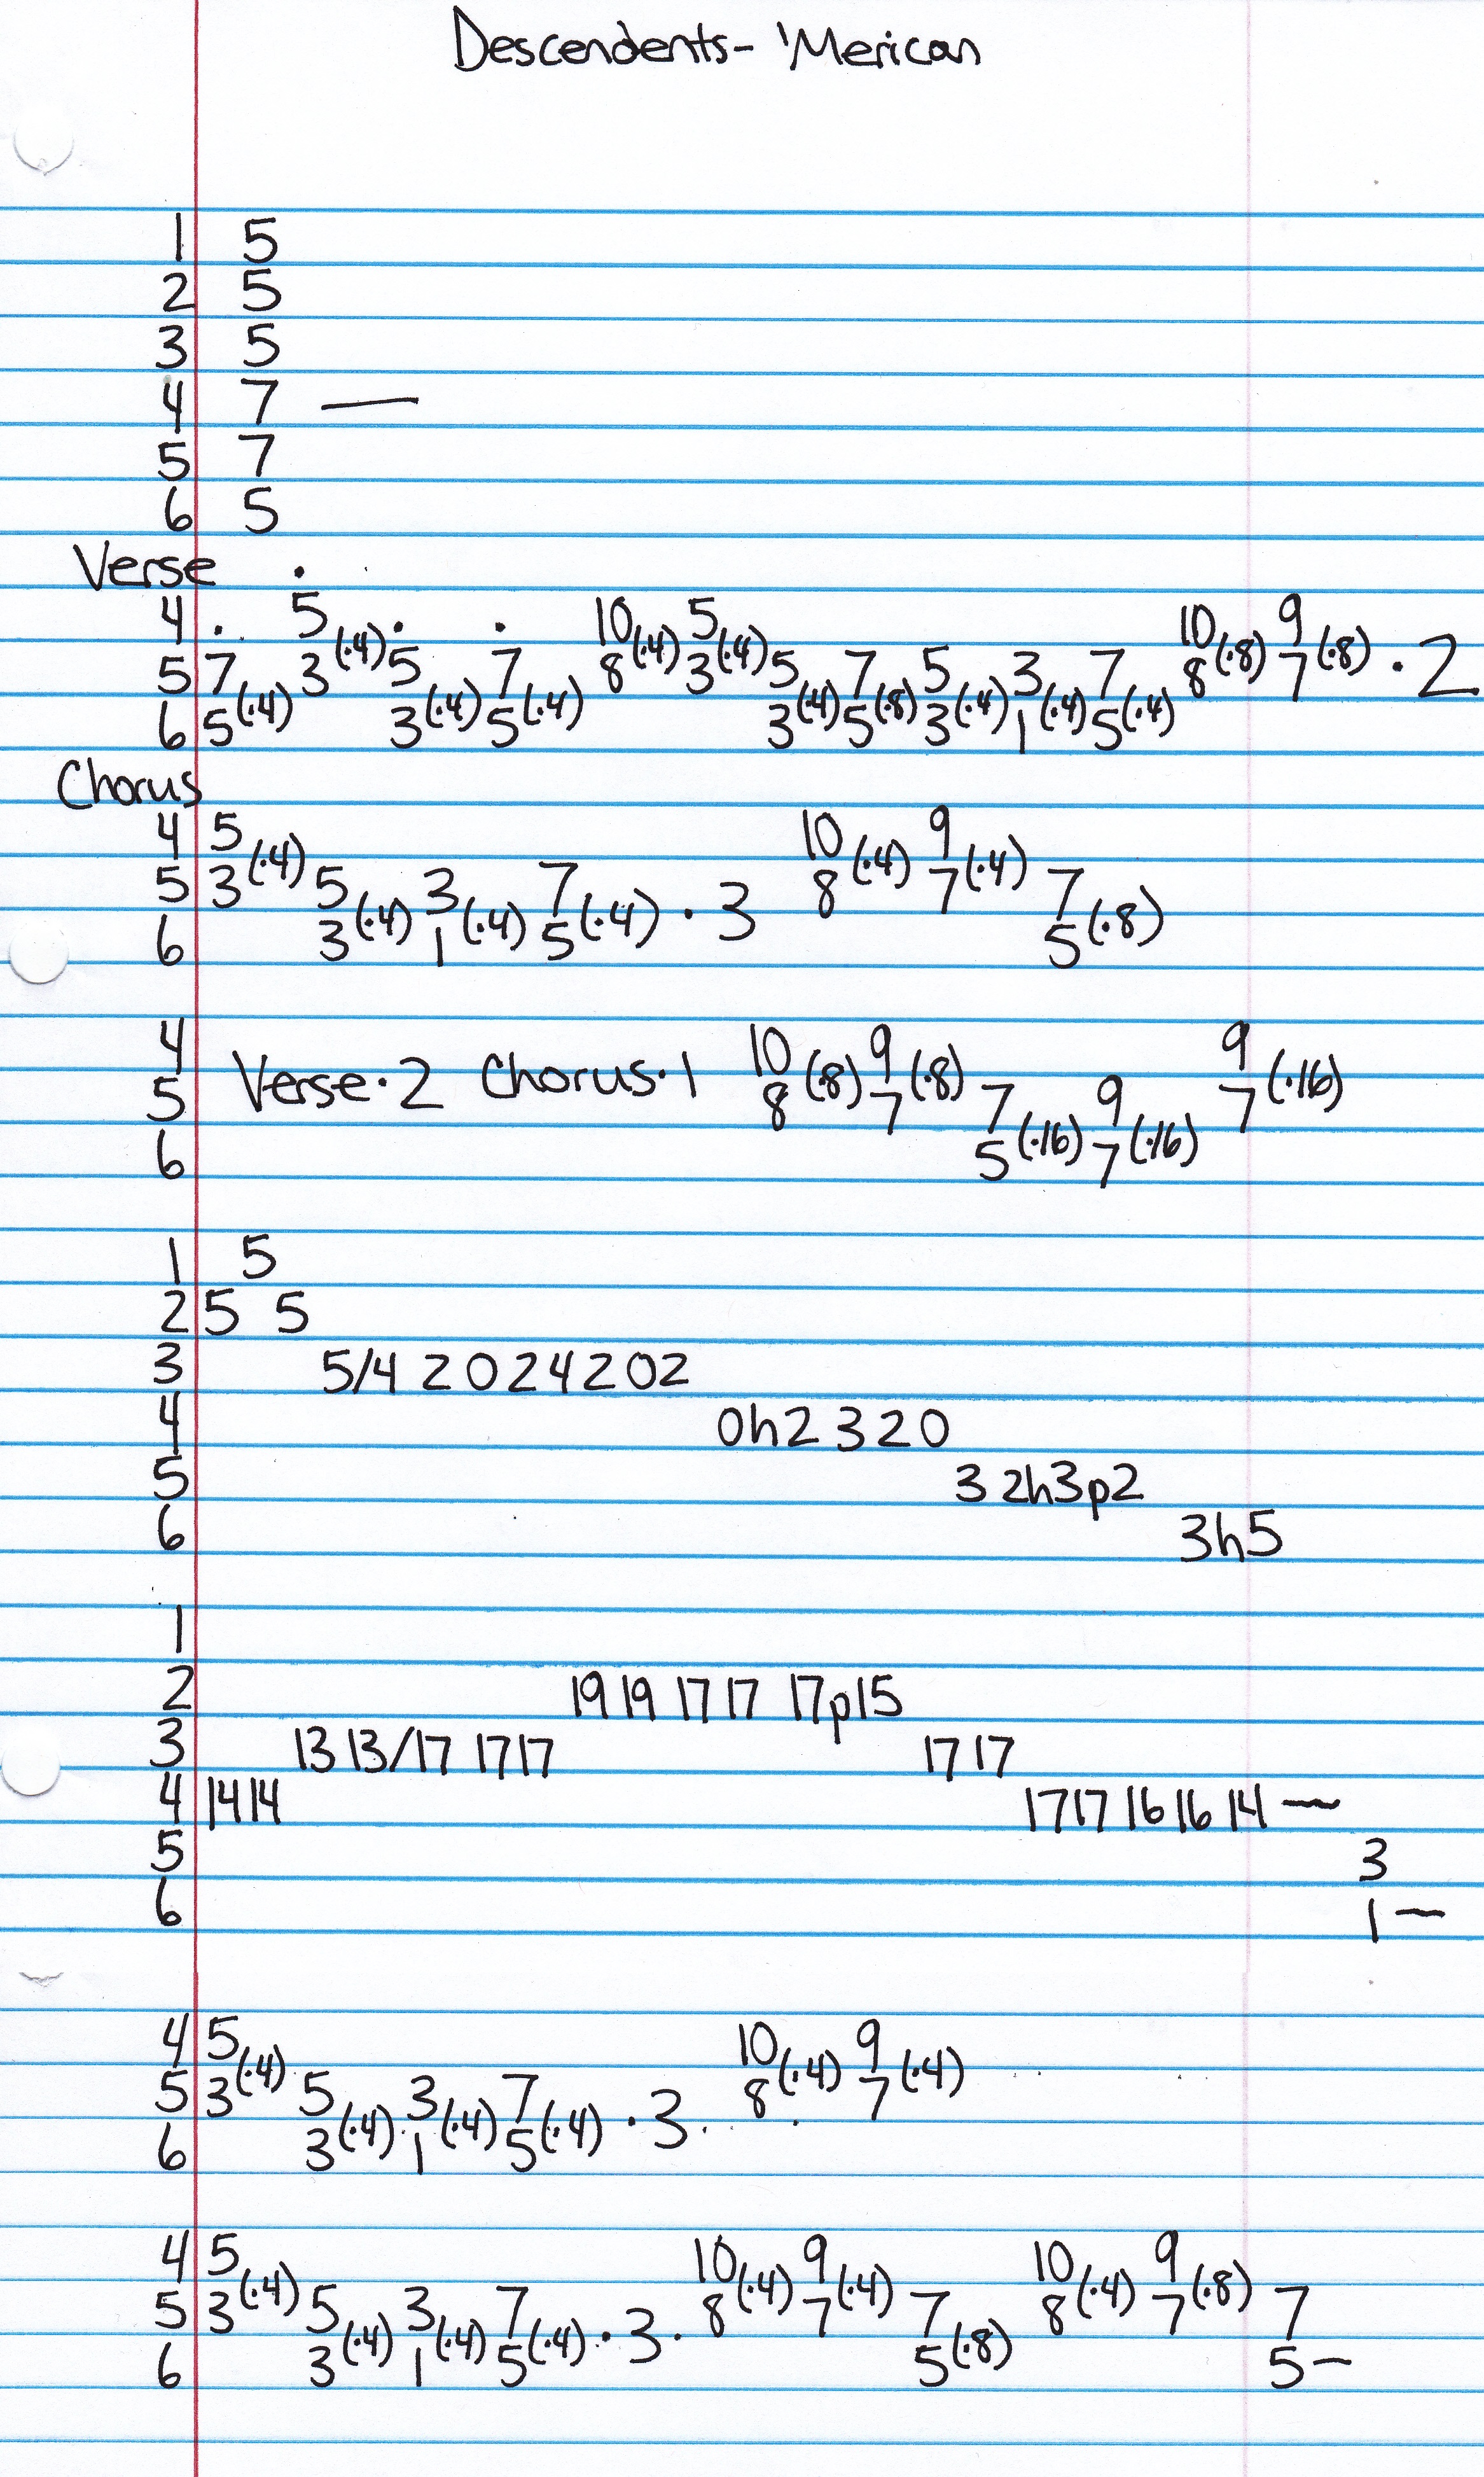 Descendents- 'Merican
1 5
2 5
3 5
4 7 —
5 7
6 5
Verse .
4 . 5 (·4) . . 10 (·4) 5 (·4) 10 (·8) 9 (·8) · 2
5 7 (·4) 3 5 (·4) 7 (·4) 8 3 5 (·4) 7 (·8) 5 (·4) 3 (·4) 7 (·4) 8 7
6 5 3 5 3 5 3 1 5
Chorus
4 5 (·4) 10 (·4) 9 (·4)
5 3 5 (·4) 3 (·4) 7 (·4) · 3 8 7 7 (·8)
6 3 1 5 5
4 10 (·8) 9 (·8) 9 (·16)
5 Verse·2 Chorus·1 8 7 7 (·16) 9 (·16) 7
6 5 7
1 5
2 5 5
3 5/4 2 0 2 4 2 0 2
4 0h2 3 2 0
5 3 2h3p2
6 3h5
1
2 19 19 17 17 17p15
3 13 13/17 17 17 17 17
4 14 14 17 17 16 16 14 ~
5 3
6 1 ~
4 5 (·4) 10 (·4) 9 (·4)
5 3 5 (·4) 3 (·4) 7 (·4) · 3 8 7
6 3 1 5
4 5 (·4) 10 (·4) 9 (·4) 10 (·4) 9 (·8)
5 3 5 (·4) 3 (·4) 7 (·4) · 3 · 8 7 7 (·8) 8 7 7
6 3 1 5 5 5 ~